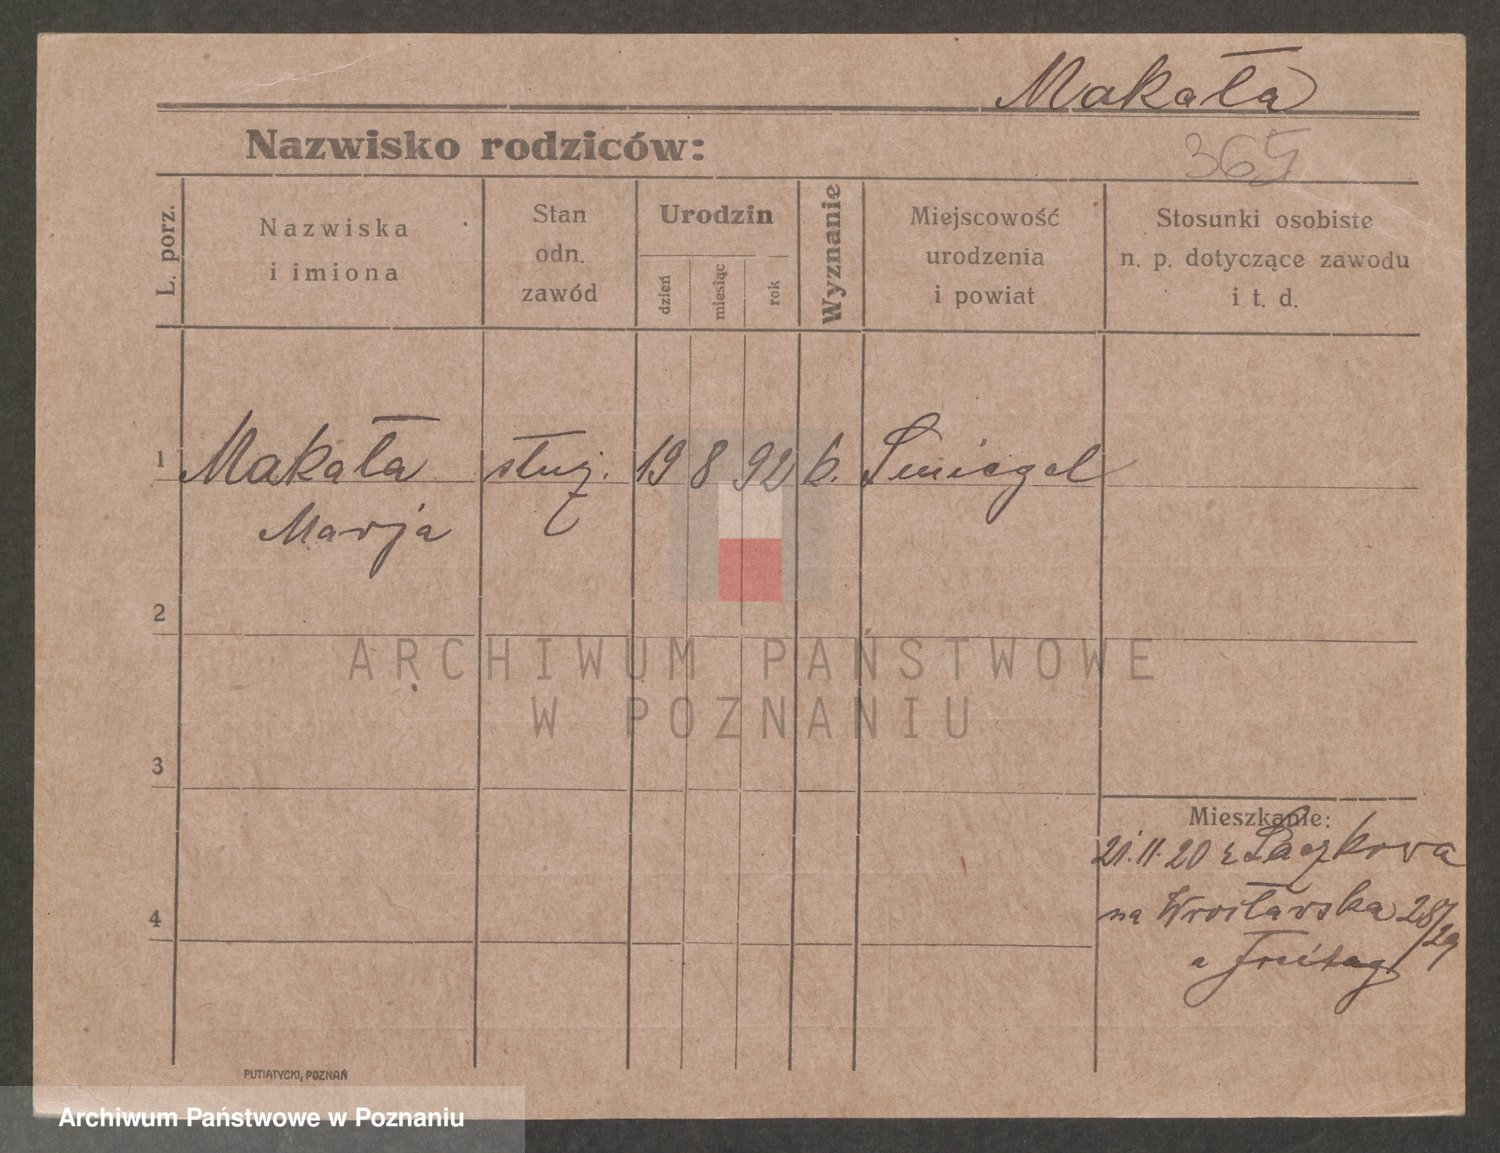 Makała
Nazwisko rodziców:
365
L. porz.
Nazwiska
i imiona
Stan
odn.
zawód
Urodzin
dzień
miesiąc
rok
Wyznanie
Miejscowość
urodzenia
i powiat
Stosunki osobiste
n. p. dotyczące zawodu
i t. d.
1 Makała służ. 19 8 92 k. Śmiegel
Marja
2
ARCHIWUM PAŃSTWOWE
W POZNANIU
3
Mieszkanie:
21.11.20 z Laczkowa
na Wrocławska 28/29
a Freitag
4
PUTIATYCKI, POZNAŃ
Archiwum Państwowe w Poznaniu